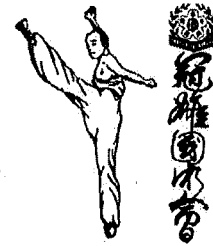 冠雄國術會